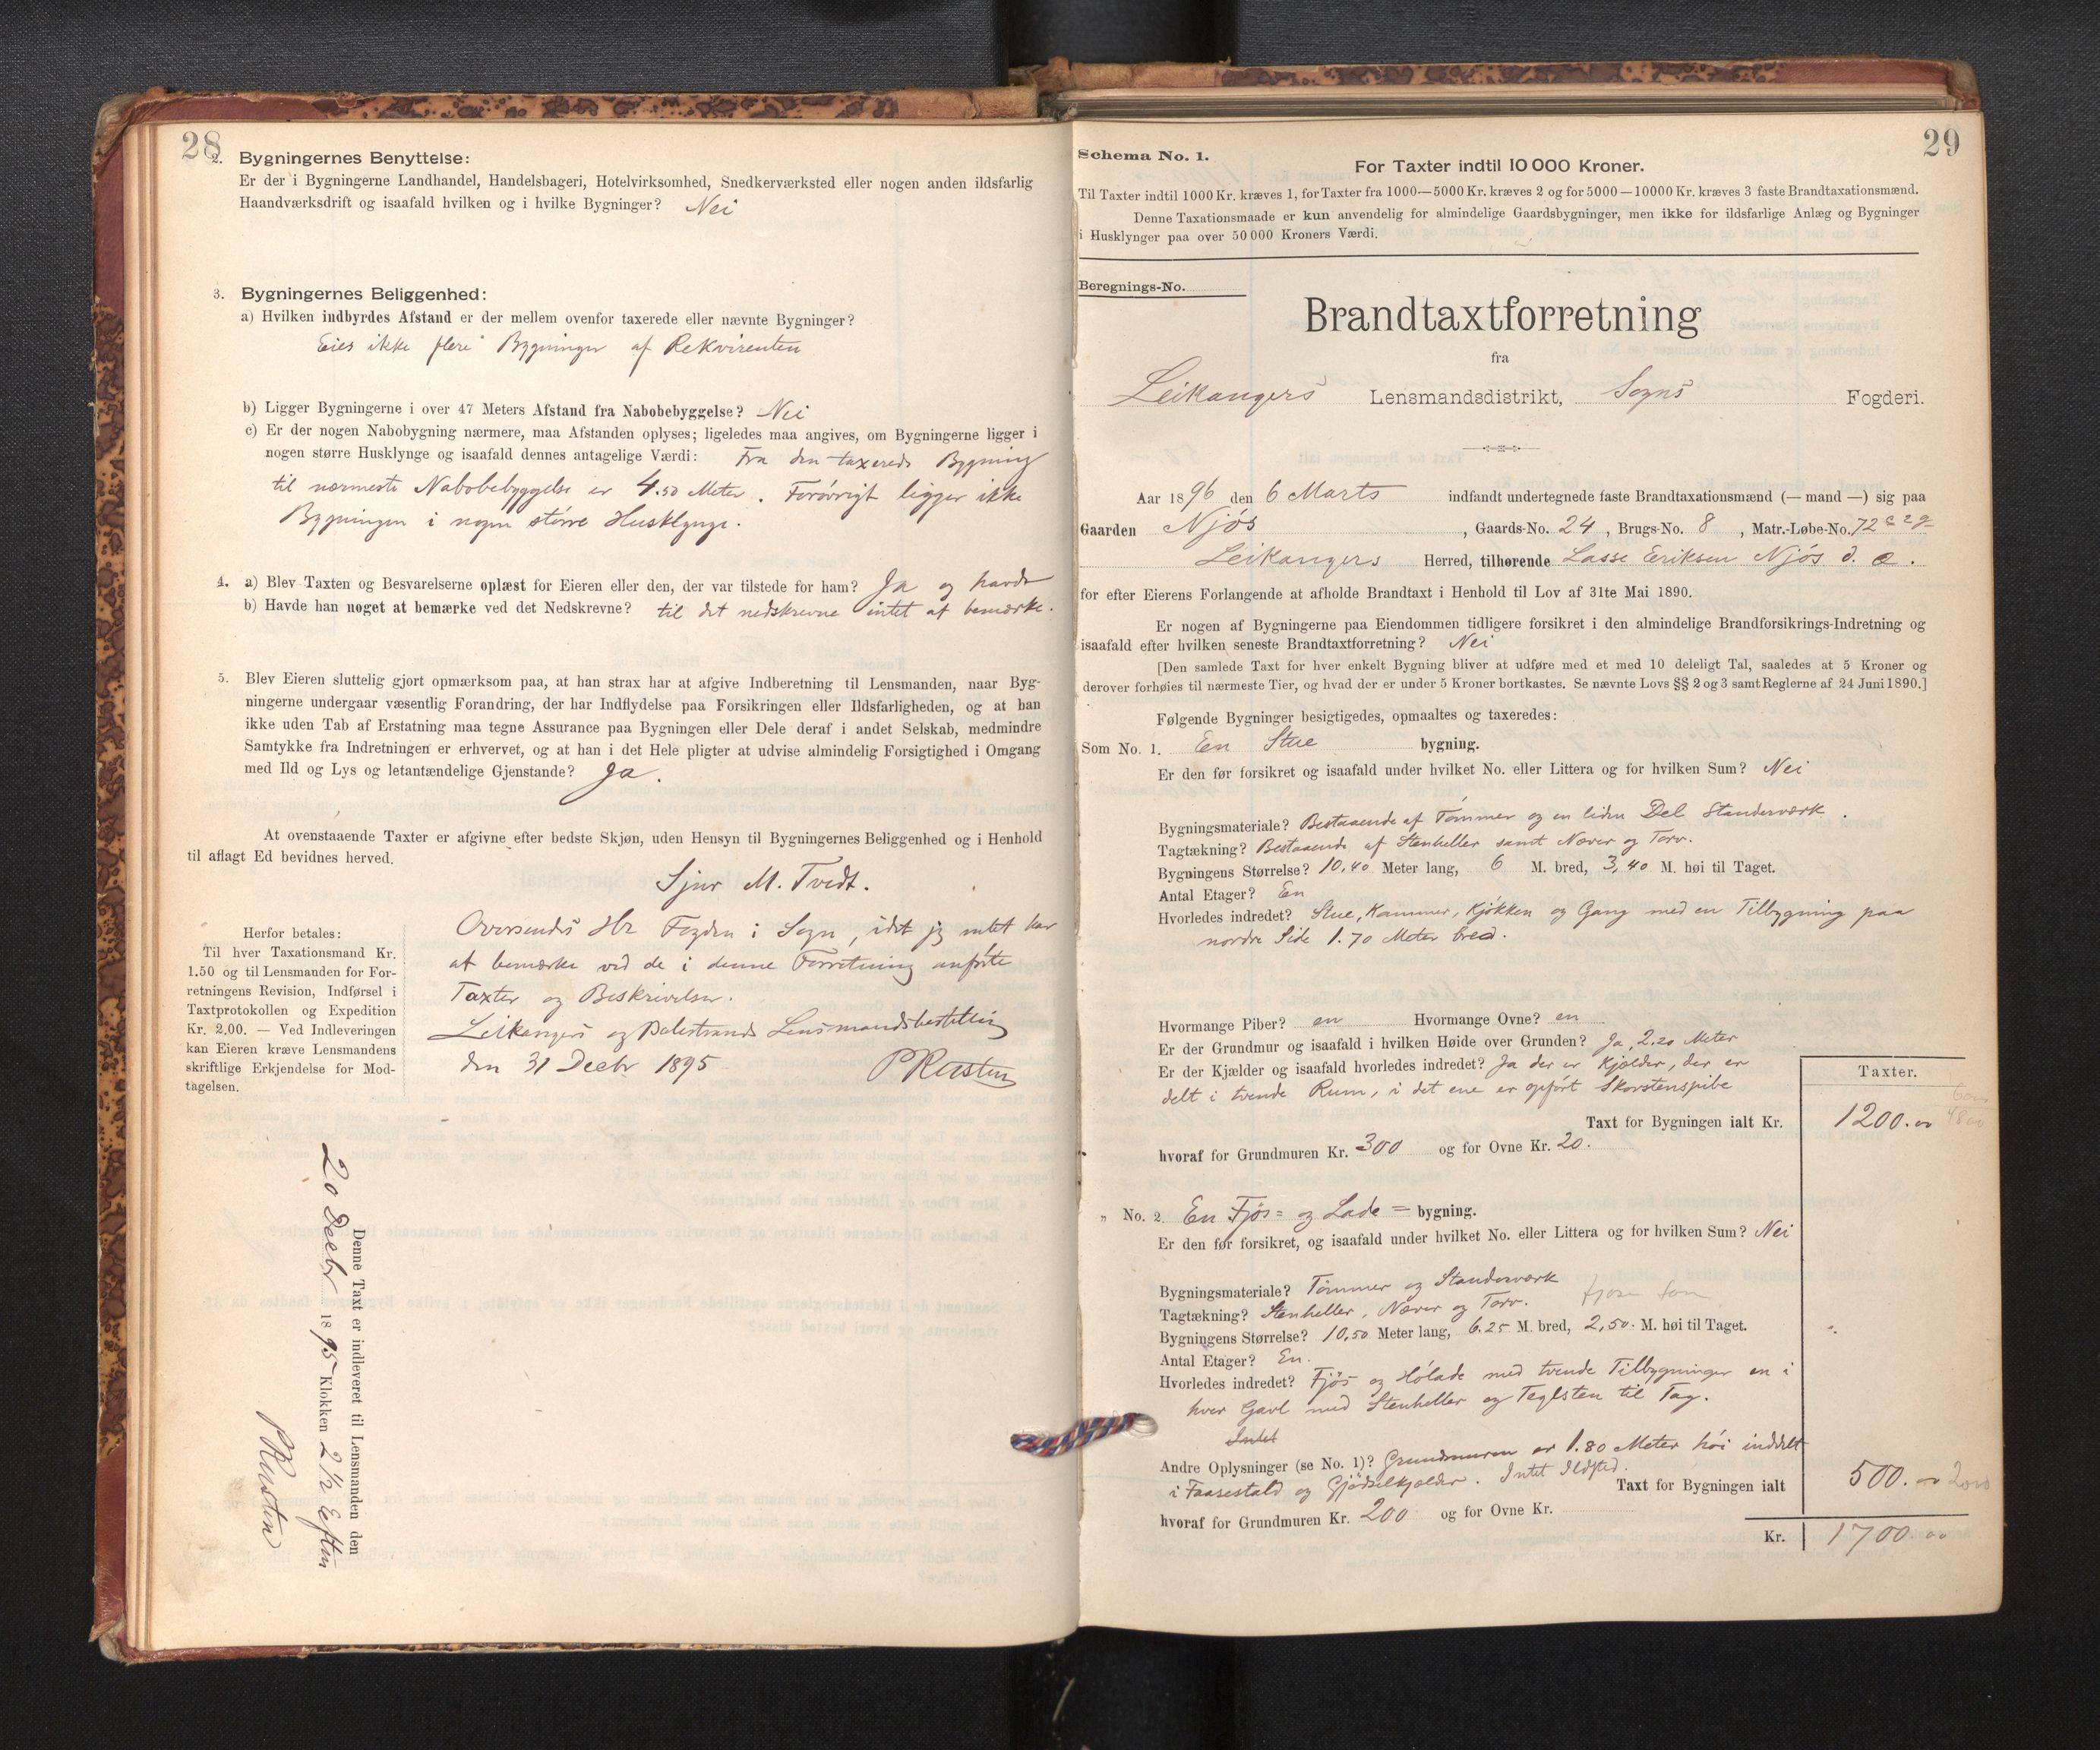 28
2. Bygningernes Benyttelse:
Er der i Bygningerne Landhandel, Handelsbageri, Hotelvirksomhed, Snedkerværksted eller nogen anden ildsfarlig
Haandværksdrift og isaafald hvilken og i hvilke Bygninger? Nei
3. Bygningernes Beliggenhed:
a) Hvilken indbyrdes Afstand er der mellem ovenfor taxerede eller nævnte Bygninger?
Eies ikke flere Bygninger af Rekvirenten
b) Ligger Bygningerne i over 47 Meters Afstand fra Nabobebyggelse? Nei
c) Er der nogen Nabobygning nærmere, maa Afstanden oplyses; ligeledes maa angives, om Bygningerne ligger i
nogen større Husklynge og isaafald dennes antagelige Værdi: Fra den taxerede Bygning
til nærmeste Nabobebyggelse er 4.50 Meter. Forøvrigt ligger ikke
Bygningen i nogen større Husklynge.
4. a) Blev Taxten og Besvarelserne oplæst for Eieren eller den, der var tilstede for ham? Ja og havde
b) Havde han noget at bemærke ved det Nedskrevne? til det nedskrevne intet at bemærke.
5. Blev Eieren sluttelig gjort opmærksom paa, at han strax har at afgive Indberetning til Lensmanden, naar Byg-
ningerne undergaar væsentlig Forandring, der har Indflydelse paa Forsikringen eller Ildsfarligheden, og at han
ikke uden Tab af Erstatning maa tegne Assurance paa Bygningen eller Dele deraf i andet Selskab, medmindre
Samtykke fra Indretningen er erhvervet, og at han i det Hele pligter at udvise almindelig Forsigtighed i Omgang
med Ild og Lys og letantændelige Gjenstande? Ja.
At ovenstaaende Taxter er afgivne efter bedste Skjøn, uden Hensyn til Bygningernes Beliggenhed og i Henhold
til aflagt Ed bevidnes herved.
Sjur M. Tvedt.
Herfor betales:
Til hver Taxationsmand Kr.
1.50 og til Lensmanden for For-
retningens Revision, Indførsel i
Taxtprotokollen og Expedition
Kr. 2,00. — Ved Indleveringen
kan Eieren kræve Lensmandens
skriftlige Erkjendelse for Mod-
tagelsen.
Oversendes Hr Fogden i Sogn, idet jeg intet har
at bemærke ved de i denne Forretning anførte
Taxter og Beskrivelser.
Leikangers og Balestrands Lensmandsbestilling
den 31 Decbr 1895
P Rusten
Denne Taxt er indleveret til Lensmanden den
20 Decbr 1895 Klokken 2 1/2 Eftm
P Rusten
29
Schema No. 1.
For Taxter indtil 10 000 Kroner.
Til Taxter indtil 1000 Kr. kræves 1, for Taxter fra 1000—5000 Kr. kræves 2 og for 5000—10000 Kr. kræves 3 faste Brandtaxationsmænd.
Denne Taxationsmaade er kun anvendelig for almindelige Gaardsbygninger, men ikke for ildsfarlige Anlæg og Bygninger
i Husklynger paa over 50 000 Kroners Værdi.
Beregnings-No.
Brandtaxtforretning
fra
Leikangers Lensmandsdistrikt, Sogns Fogderi.
Aar 1896 den 6 Marts indfandt undertegnede faste Brandtaxationsmænd (— mand —) sig paa
Gaarden Njøs, Gaards-No. 24, Brugs-No. 8, Matr.-Løbe-No. 72
Leikangers Herred, tilhørende Lasse Eriksen Njøs d. æ.
for efter Eierens Forlangende at afholde Brandtaxt i Henhold til Lov af 31te Mai 1890.
Er nogen af Bygningerne paa Eiendommen tidligere forsikret i den almindelige Brandforsikrings-Indretning og
isaafald efter hvilken seneste Brandtaxtforretning? Nei
[Den samlede Taxt for hver enkelt Bygning bliver at udføre med et med 10 deleligt Tal, saaledes at 5 Kroner og
derover forhøies til nærmeste Tier, og hvad der er under 5 Kroner bortkastes. Se nævnte Lovs §§ 2 og 3 samt Reglerne af 24 Juni 1890.]
Følgende Bygninger besigtigedes, opmaaltes og taxeredes:
Som No. 1. En Stue bygning.
Er den før forsikret og isaafald under hvilket No. eller Littera og for hvilken Sum? Nei
Bygningsmateriale? Bestaaende af Tømmer og en liden Del Standerværk.
Tagtækning? Bestaaende af Stenheller samt Næver og Torv.
Bygningens Størrelse? 10,40 Meter lang, 6 M. bred, 3,40 M. høi til Taget.
Antal Etager? En
Hvorledes indredet? Stue, Kammer, Kjøkken og Gang med en Tilbygning paa
nordre Side 1.70 Meter bred.
Hvormange Piber? en Hvormange Ovne? en
Er der Grundmur og isaafald i hvilken Høide over Grunden? Ja, 2.20 Meter
Er der Kjælder og isaafald hvorledes indredet? Ja der er Kjælder, der er
delt i tvende Rum, i det ene er opført Skorstenspibe
Taxter.
Taxt for Bygningen ialt Kr. 1200.00
hvoraf for Grundmuren Kr. 300 og for Ovne Kr. 20.
„ No. 2. En Fjøs= og Lade= bygning.
Er den før forsikret, og isaafald under hvilket No. eller Littera og for hvilken Sum? Nei
Bygningsmateriale? Tømmer og Standerværk
Tagtækning? Stenheller, Næver og Torv.
Bygningens Størrelse? 10,50 Meter lang, 6.25 M. bred, 2,50. M. høi til Taget.
Antal Etager? En.
Hvorledes indredet? Fjøs og Hølade med tvende Tilbygninger en i
hver Gavl med Stenheller og Teglsten til Tag.
Intet
Andre Oplysninger (se No. 1)? Grundmuren er 1.80 Meter høi inddelt
i Faarestald og Gjødselkjælder. Intet Ildsted.
Taxt for Bygningen ialt 500.00
hvoraf for Grundmuren Kr. 200 og for Ovne Kr.
Kr. 1700.00